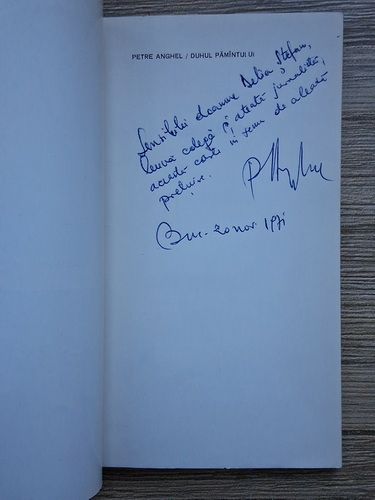 PETRE ANGHEL / DUHUL PĂMÎNTULUI
Sensibilei doamne Delia Ștefan,
buna colegă și atentă jurnalistă,
această carte în semn de aleasă
prețuire.
Buc. 20 nov. 1971